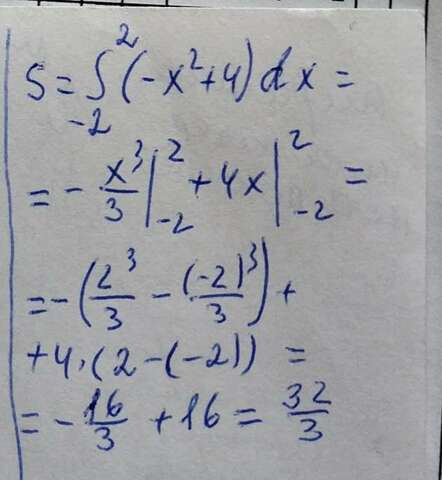 S = ∫_{-2}^{2} (-x²+4) dx =
= - x³/3 |_{-2}^{2} + 4x |_{-2}^{2} =
= -(2³/3 - (-2)³/3) +
+4·(2-(-2)) =
= - 16/3 + 16 = 32/3